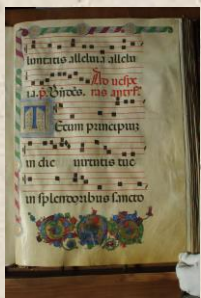 luntatis alleluia allelu
ia. p̄. Bn̄dc̄s. Ad vespe
ras antif̄.
Tecum principiuz
in die virtutis tue
in splendoribus sancto